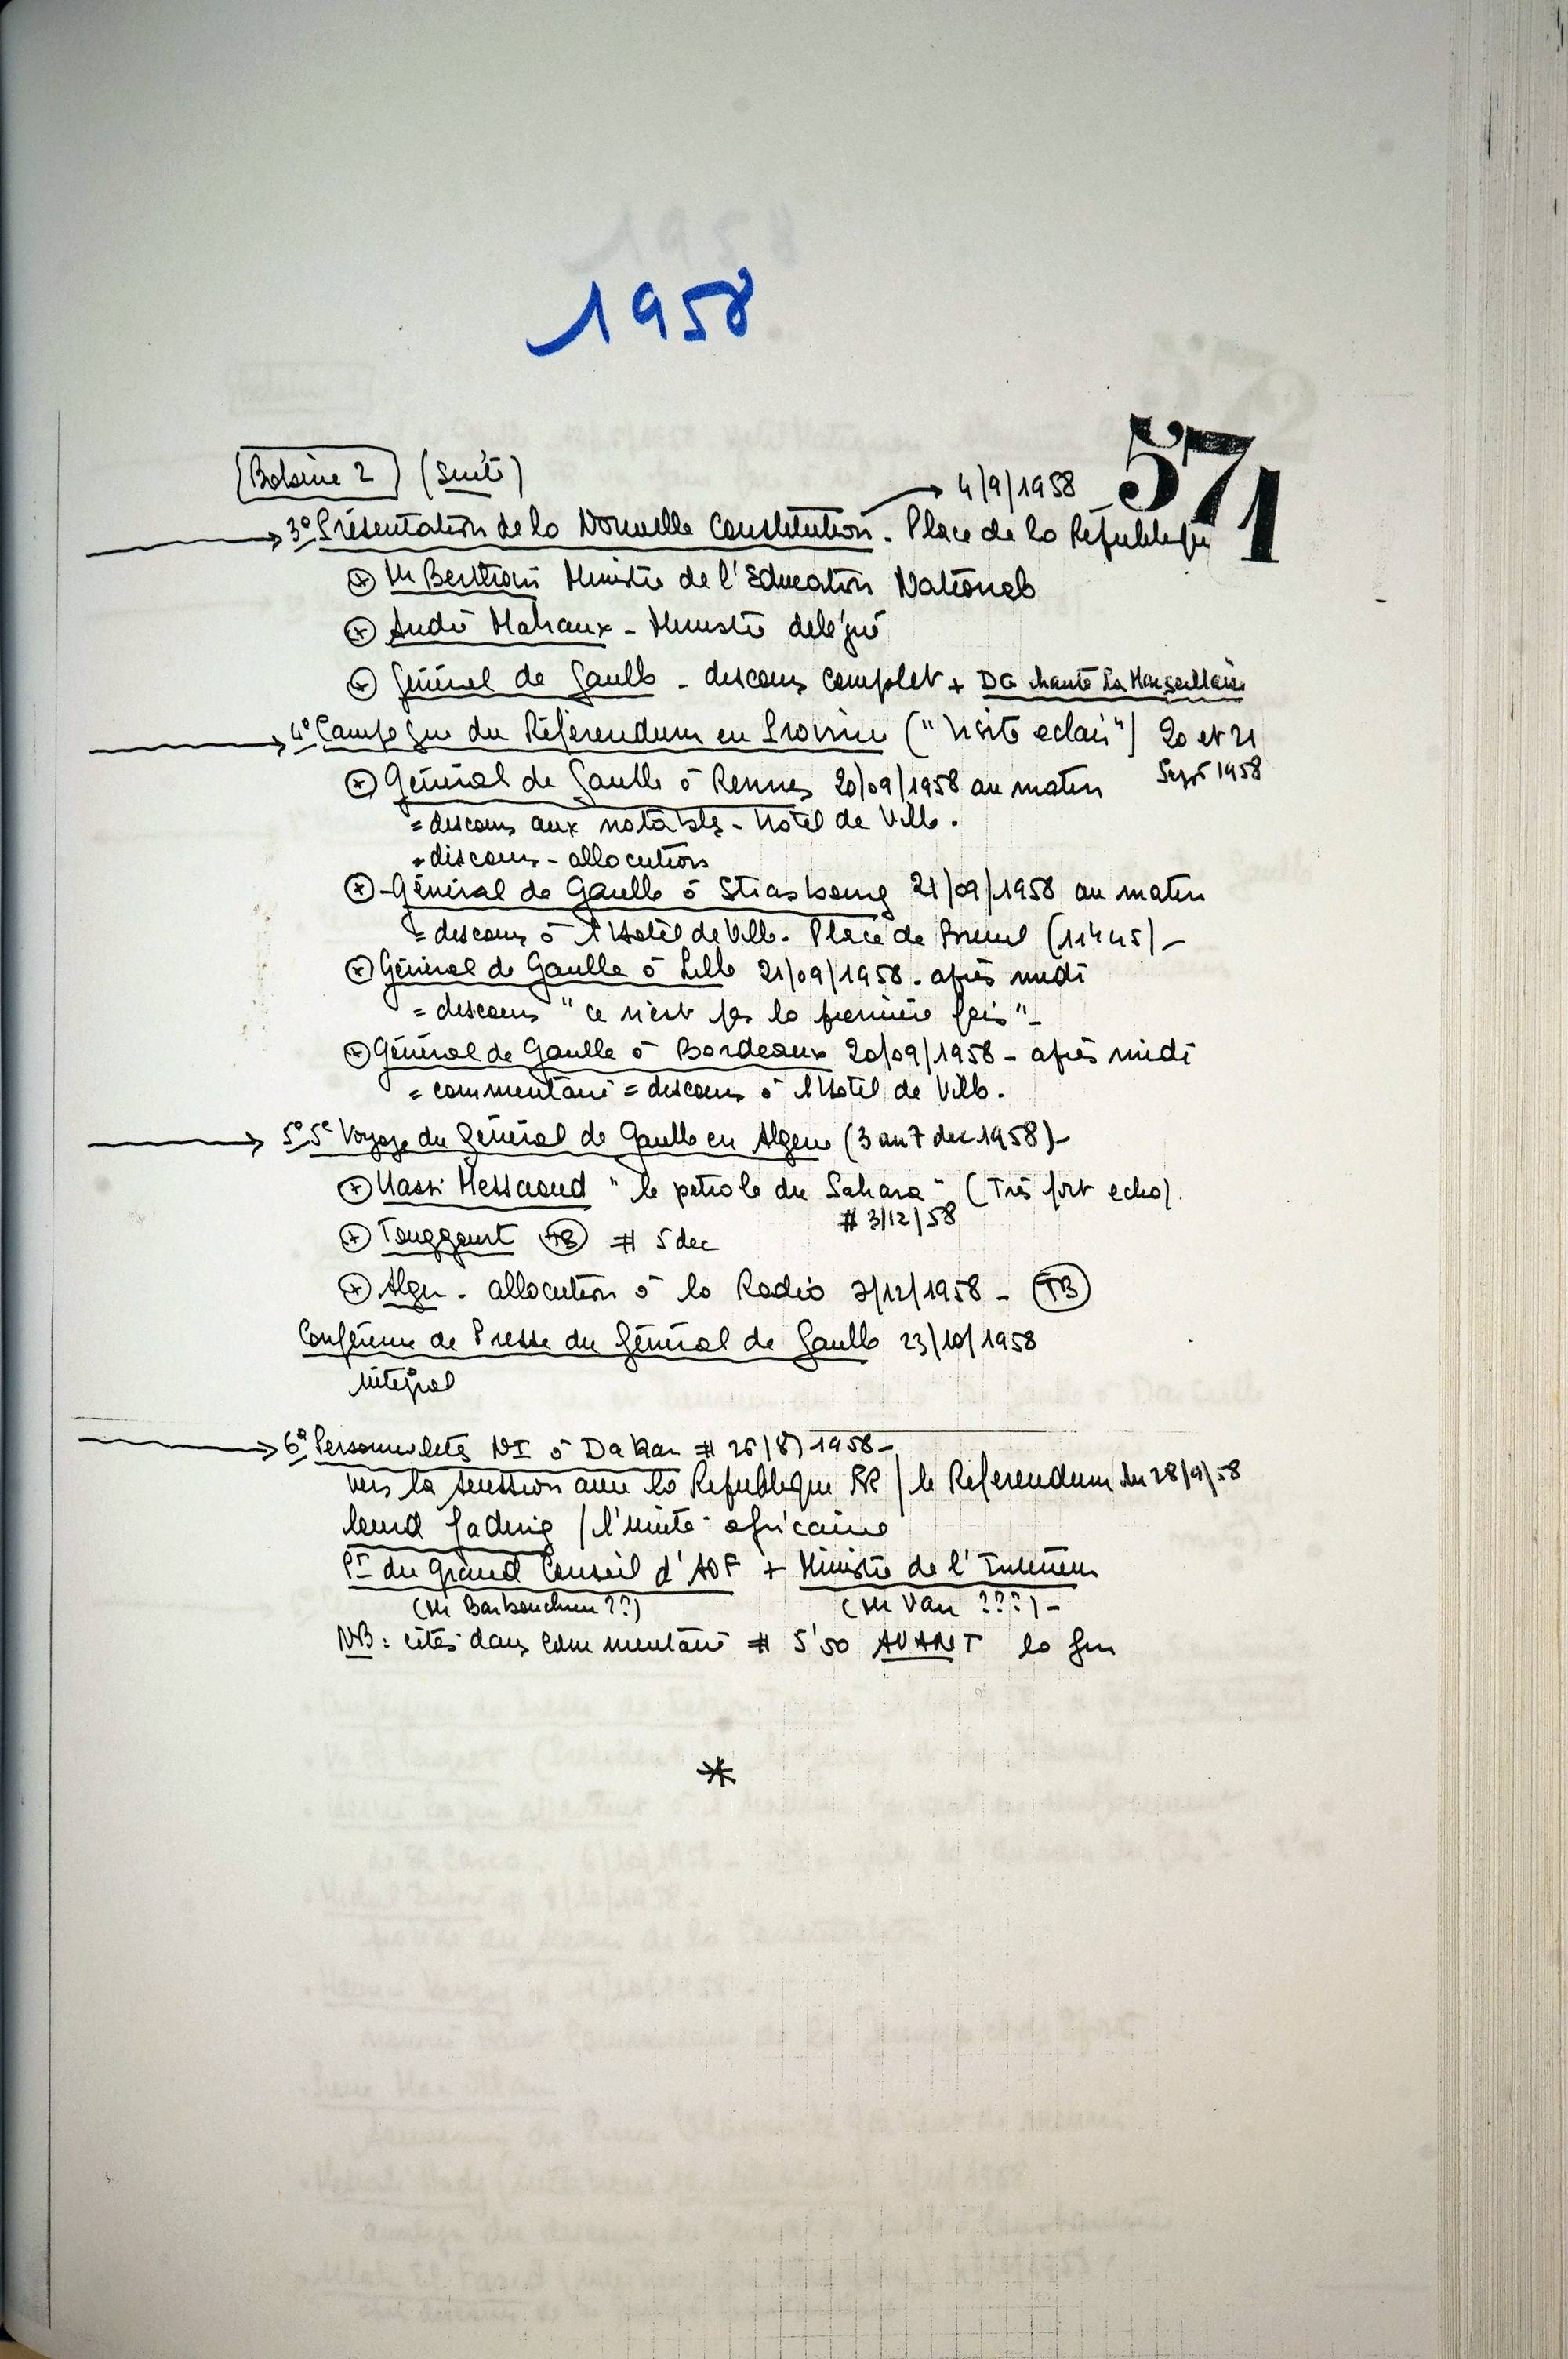 1958
571
Bobine 2 (suite)
4/9/1958
3° Présentation de la Nouvelle Constitution. Place de la République
Mr Berthoin Ministre de l'Education Nationale
André Malraux - Ministre délégué
Général de Gaulle - discours complet + DG chante la Marseillaise
4° Campagne du Référendum en Province ("Visite eclair") 20 et 21
Sept 1958
Général de Gaulle à Rennes 20/09/1958 au matin
= discours aux notables - hotel de Ville.
= discours - allocution
Général de Gaulle à Strasbourg 21/09/1958 au matin
= discours à l'Hotel de Ville. Place de (11h45) -
Général de Gaulle à Lille 21/09/1958. après midi
= discours "ce n'est pas la première fois" -
Général de Gaulle à Bordeaux 20/09/1958 - après midi
= commentaire = discours à l'Hotel de Ville.
5° 5e Voyage du Général de Gaulle en Algerie (3 au 7 dec 1958) -
Hassi Messaoud "le petrole du Sahara" (Très fort echo).
# 3/12/58
Touggourt TB # 5 dec
Alger - allocution à la Radio 7/12/1958 - TB
Conférence de Presse du Général de Gaulle 23/10/1958
intégral
6° Personnalités NI à Dakar # 26/8/1958 -
vers la secession avec la Republique / le Referendum du 28/9/58
lourd fading / l'unité africaine
Pt du Grand Conseil d'AOF + Ministre de l'Interieur
(Mr ??) (Mr Van ???) -
NB: cités dans commentaire # 5'50 AVANT la fin